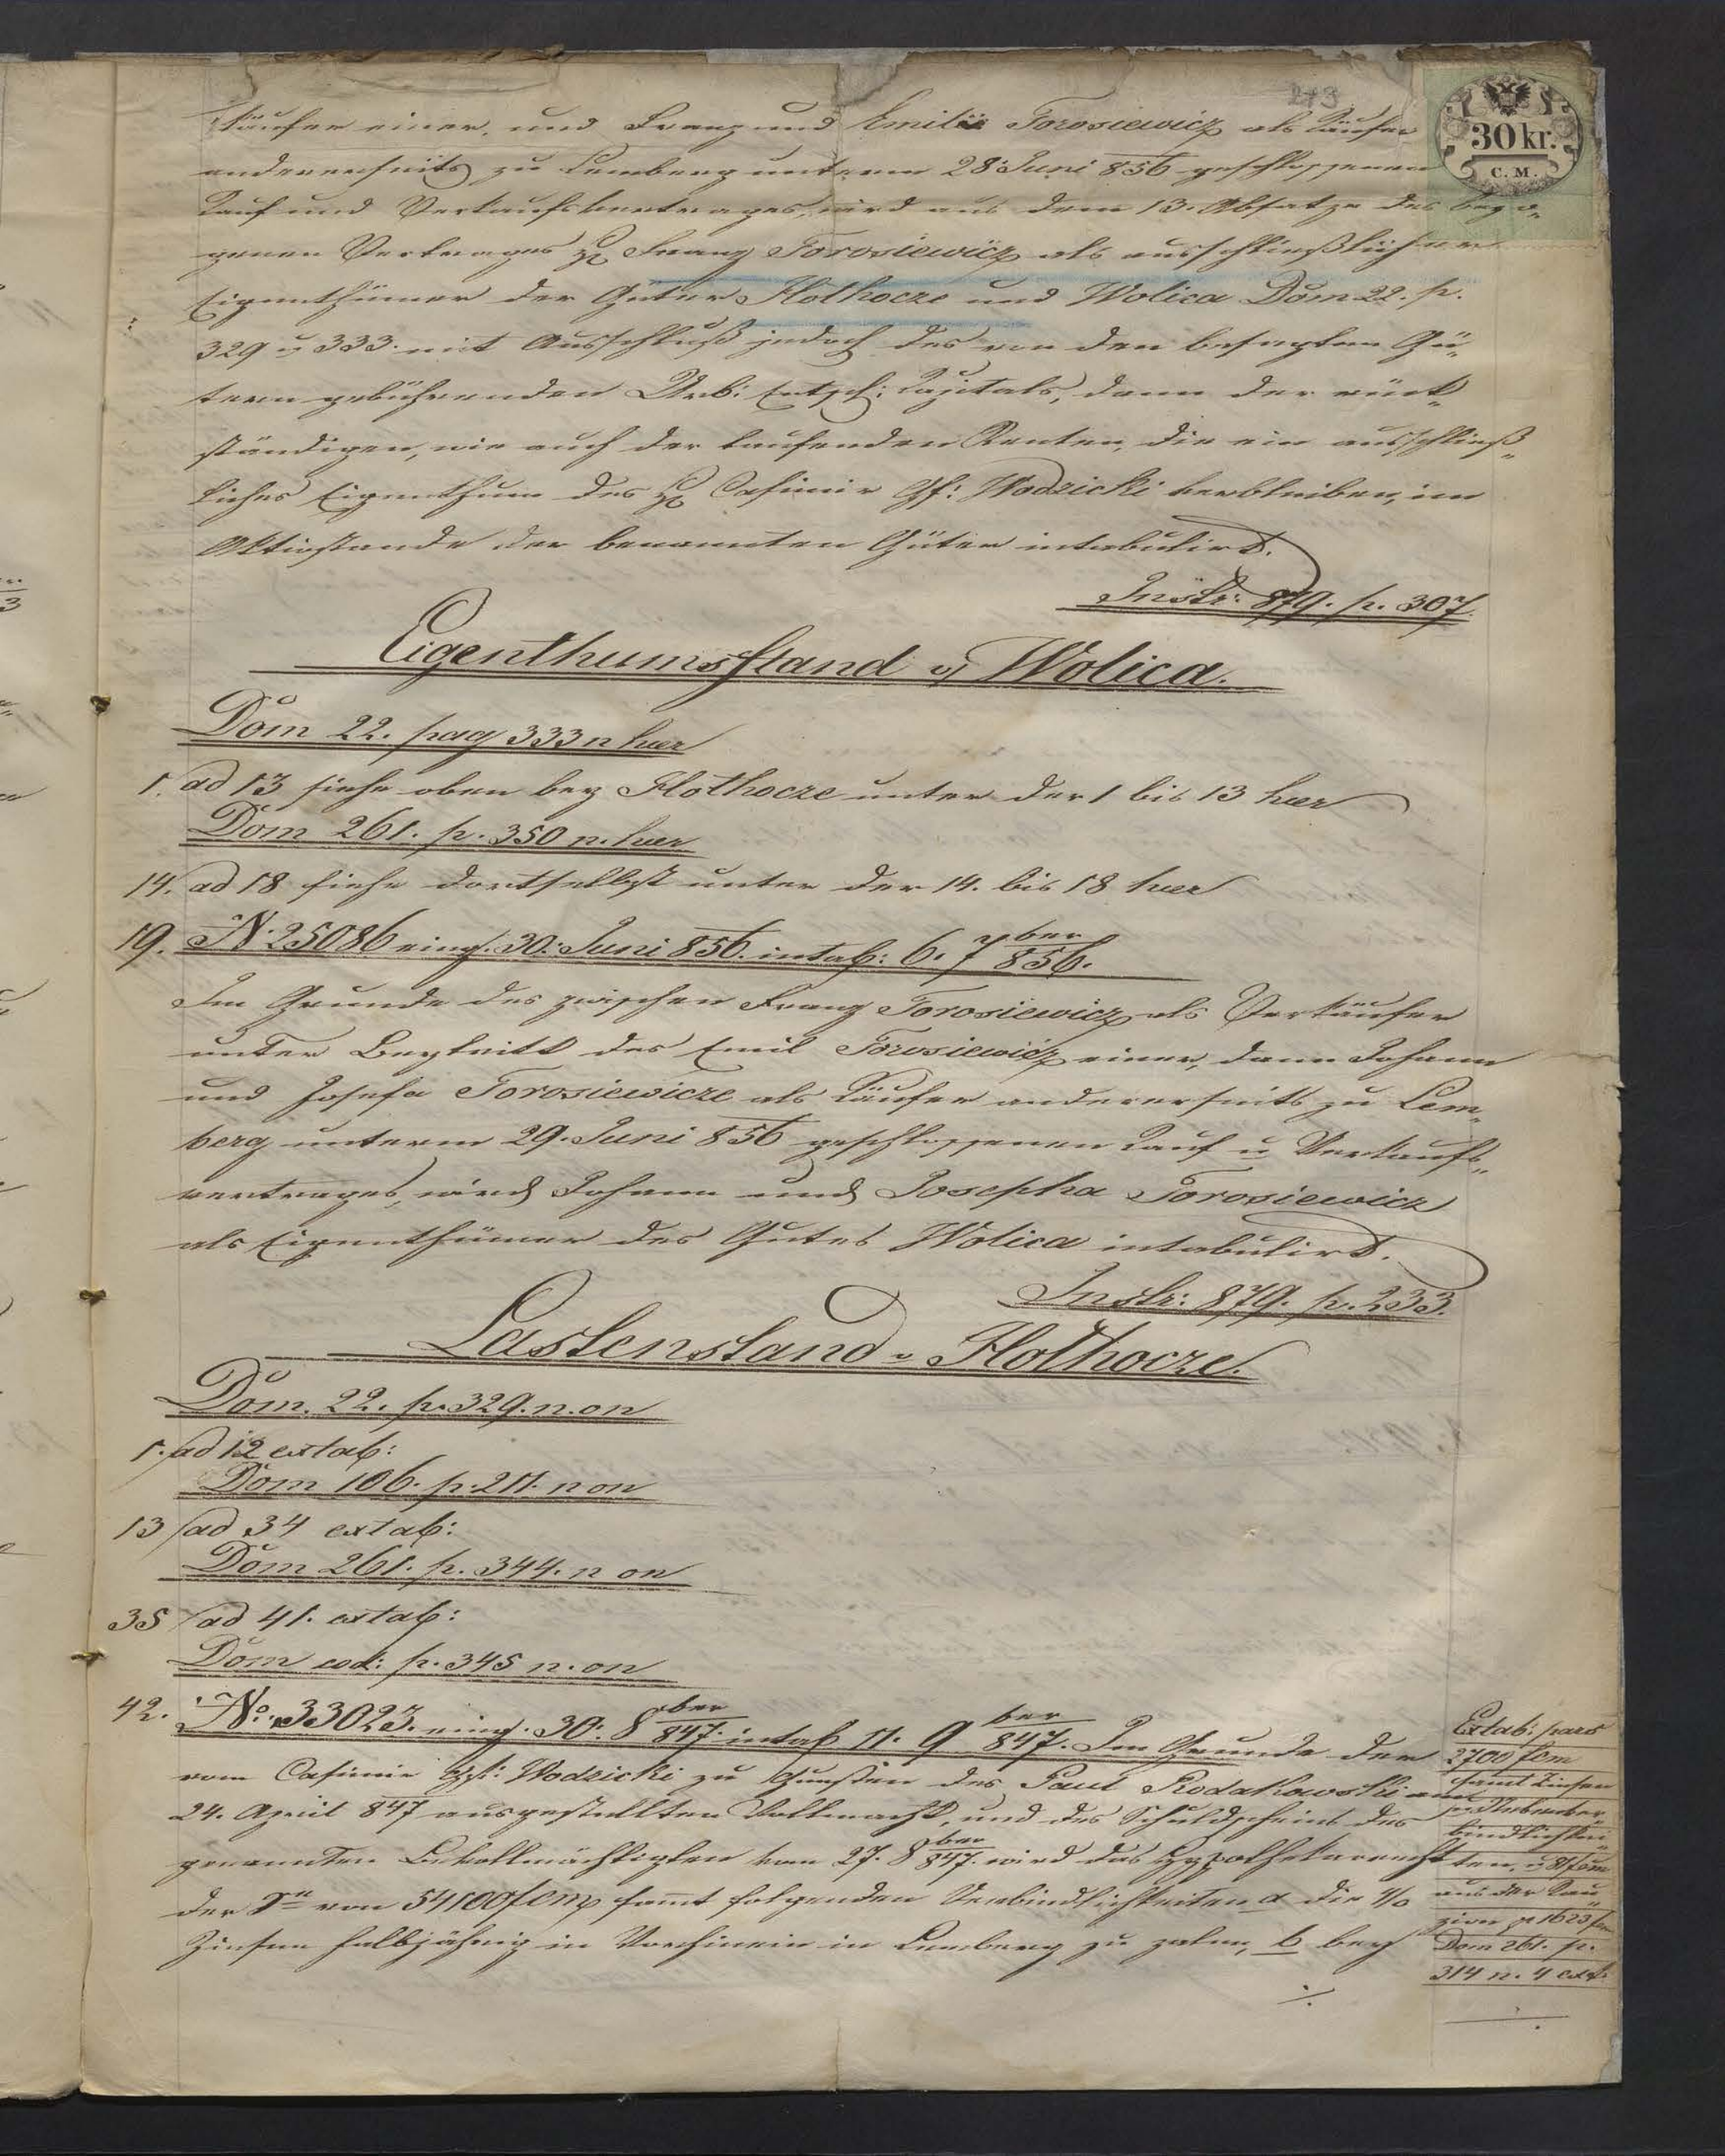 273
30 kr.
C. M.
käufer einer, und Franz und Emilie Torosiewicz als Käufer
andererseits zu Lemberg unterm 28. Juni 856 geschlossenen
Kauf und Verkaufsvertrages, wird aus dem 13. Absatze des bezo„
genen Vertrages H Franz Torosiewicz als ausschließlicher
Eigenthümer der Güter Hołhocze und Wolica Dom 22. p.
329 u 333. mit Ausschluß jedoch des von den besagten Gü„
tern gebührenden Urb: Entsch: Kapitals, dann der rück„
ständigen, wie auch der laufenden Renten, die ein ausschließ„
liches Eigenthum des H Casimir Gf: Wodzicki verbleiben, im
Aktivstande der benannten Güter intabulirt.
Instr: 879. p. 307.
Eigenthumsstand v Wolica.
Dom 22. pag 333 n haer
1. ad 13 siehe oben bey Hołhocze unter der 1 bis 13 haer
Dom 261. p. 350 n. haer
14. ad 18 siehe dortselbst unter der 14. bis 18 haer
19. N. 25086 eing. 30. Juni 856. intab: 6. 7ber 856.
Im Grunde des zwischen Franz Torosiewicz als Verkäufer
unter Beytritt des Emil Torosiewicz einer, dann Johann
und Josefa Torosiewicze als Käufer andererseits zu Lem„
berg unterm 29. Juni 856 geschlossenen Kauf u Verkaufs„
vertrages, wird Johann und Josepha Torosiewicz
als Eigenthümer des Gutes Wolica intabulirt.
Instr: 879. p. 233.
Lastenstand v Hołhocze.
Dom. 22. p. 329. n. on
1. ad 12 extab:
Dom 106. p. 211. n on
13 ad 34 extab:
Dom 261. p. 344. n on
35 ad 41. extab:
Dom eod: p. 345 n. on
42. No. 33023. eing. 30. 8ber 847. intab 11. 9ber 847. Im Grunde der
vom Casimir Gf: Wodzicki zu Gunsten des Paul Rodakowski am
24. April 847 ausgestellten Vollmacht, und des Schuldscheins des
genannten Bevollmächtigten vom 27. 8ber 847. wird das Hypothekarrecht
der Se von 54100 f cmz sammt folgenden Verbindlichkeiten a die
Zinsen halbjährig in Vorhinein in Lemberg zu zalen, b bey
./.
Extab: pars
2700 fcm
sammt Zinsen
Nebenver„
bindlichkei„
ten, u
aus der Kau„
zion p 1623 f
Dom 261. p.
314 n. 4 ext.